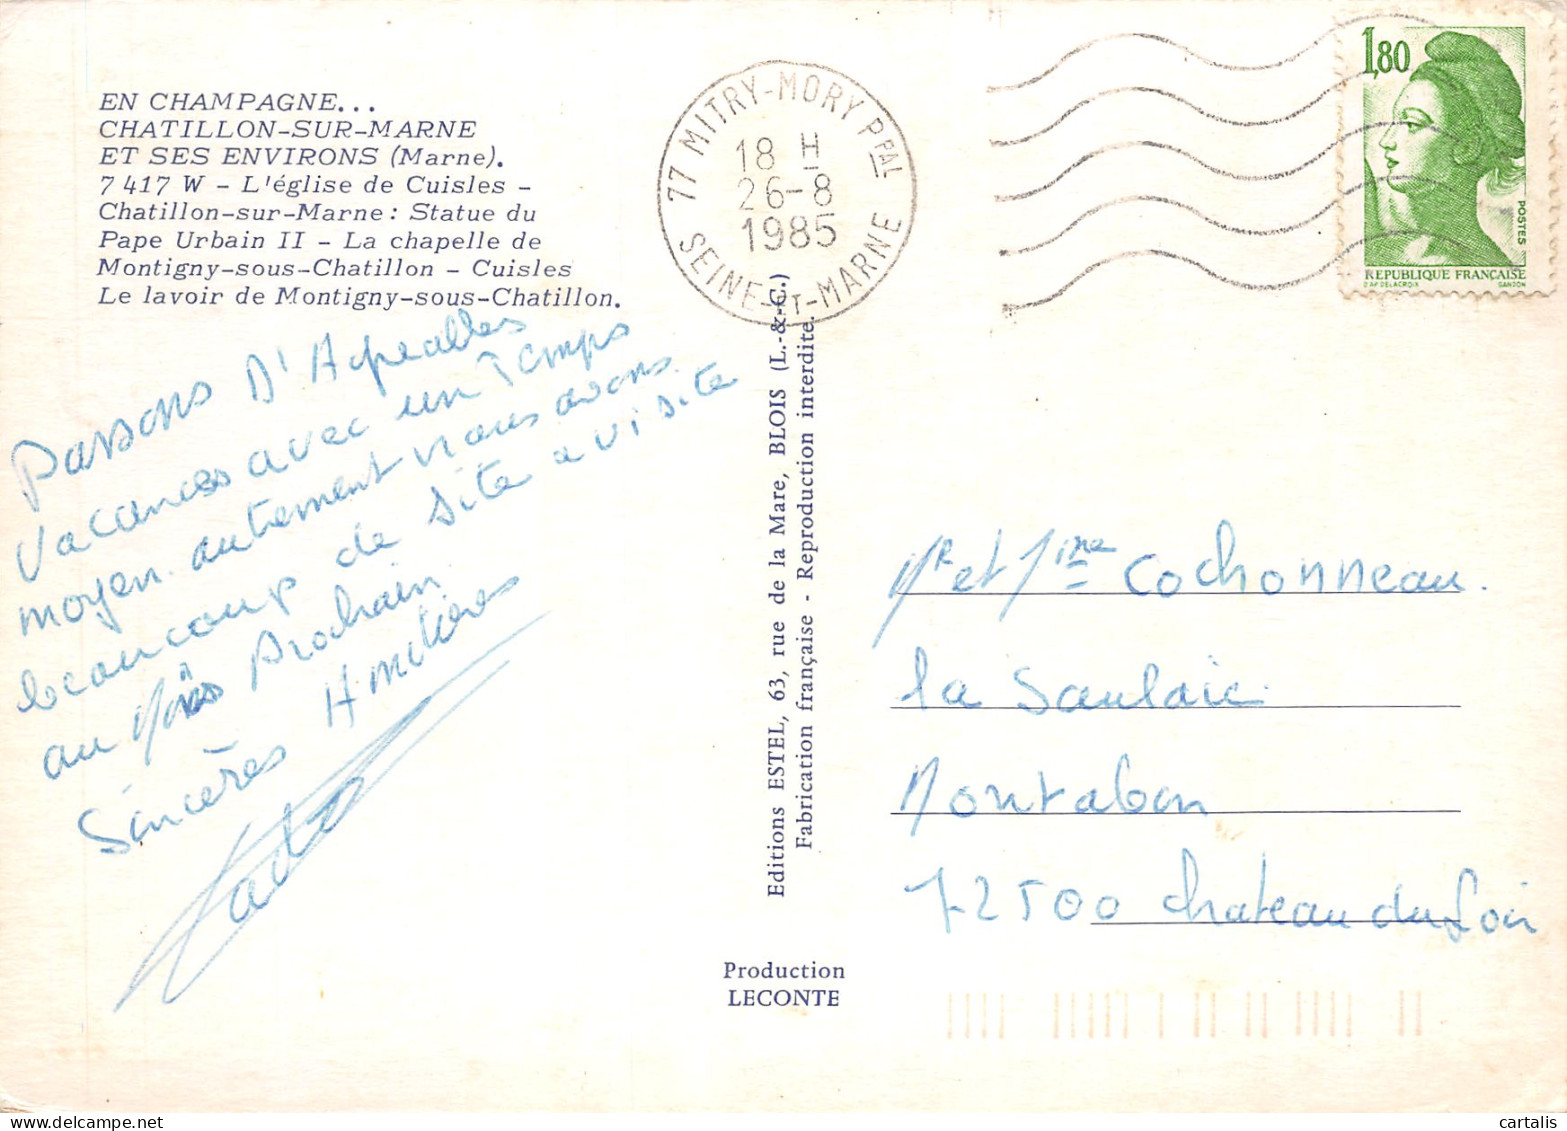 EN CHAMPAGNE...
CHATILLON-SUR-MARNE
ET SES ENVIRONS (Marne).
7 417 W - L'église de Cuisles -
Chatillon-sur-Marne : Statue du
Pape Urbain II - La chapelle de
Montigny-sous-Chatillon - Cuisles
Le lavoir de Montigny-sous-Chatillon.
Passons D'Agreables
vacances avec un Temps
moyen. autrement nous avons
beaucoup de site a visite
au Prochain
Sincères
77 MITRY-MORY PPAL
18 H
26-8
1985
SEINE-ET-MARNE
1,80
POSTES
REPUBLIQUE FRANÇAISE
D'AP. DELACROIX GANDON
Editions ESTEL, 63, rue de la Mare, BLOIS (L.-&-C.)
Fabrication française - Reproduction interdite.
Production
LECONTE
Mr et Mme Cochonneau.
la Saulaie
Montabon
72500 chateau du Loir
cartalis